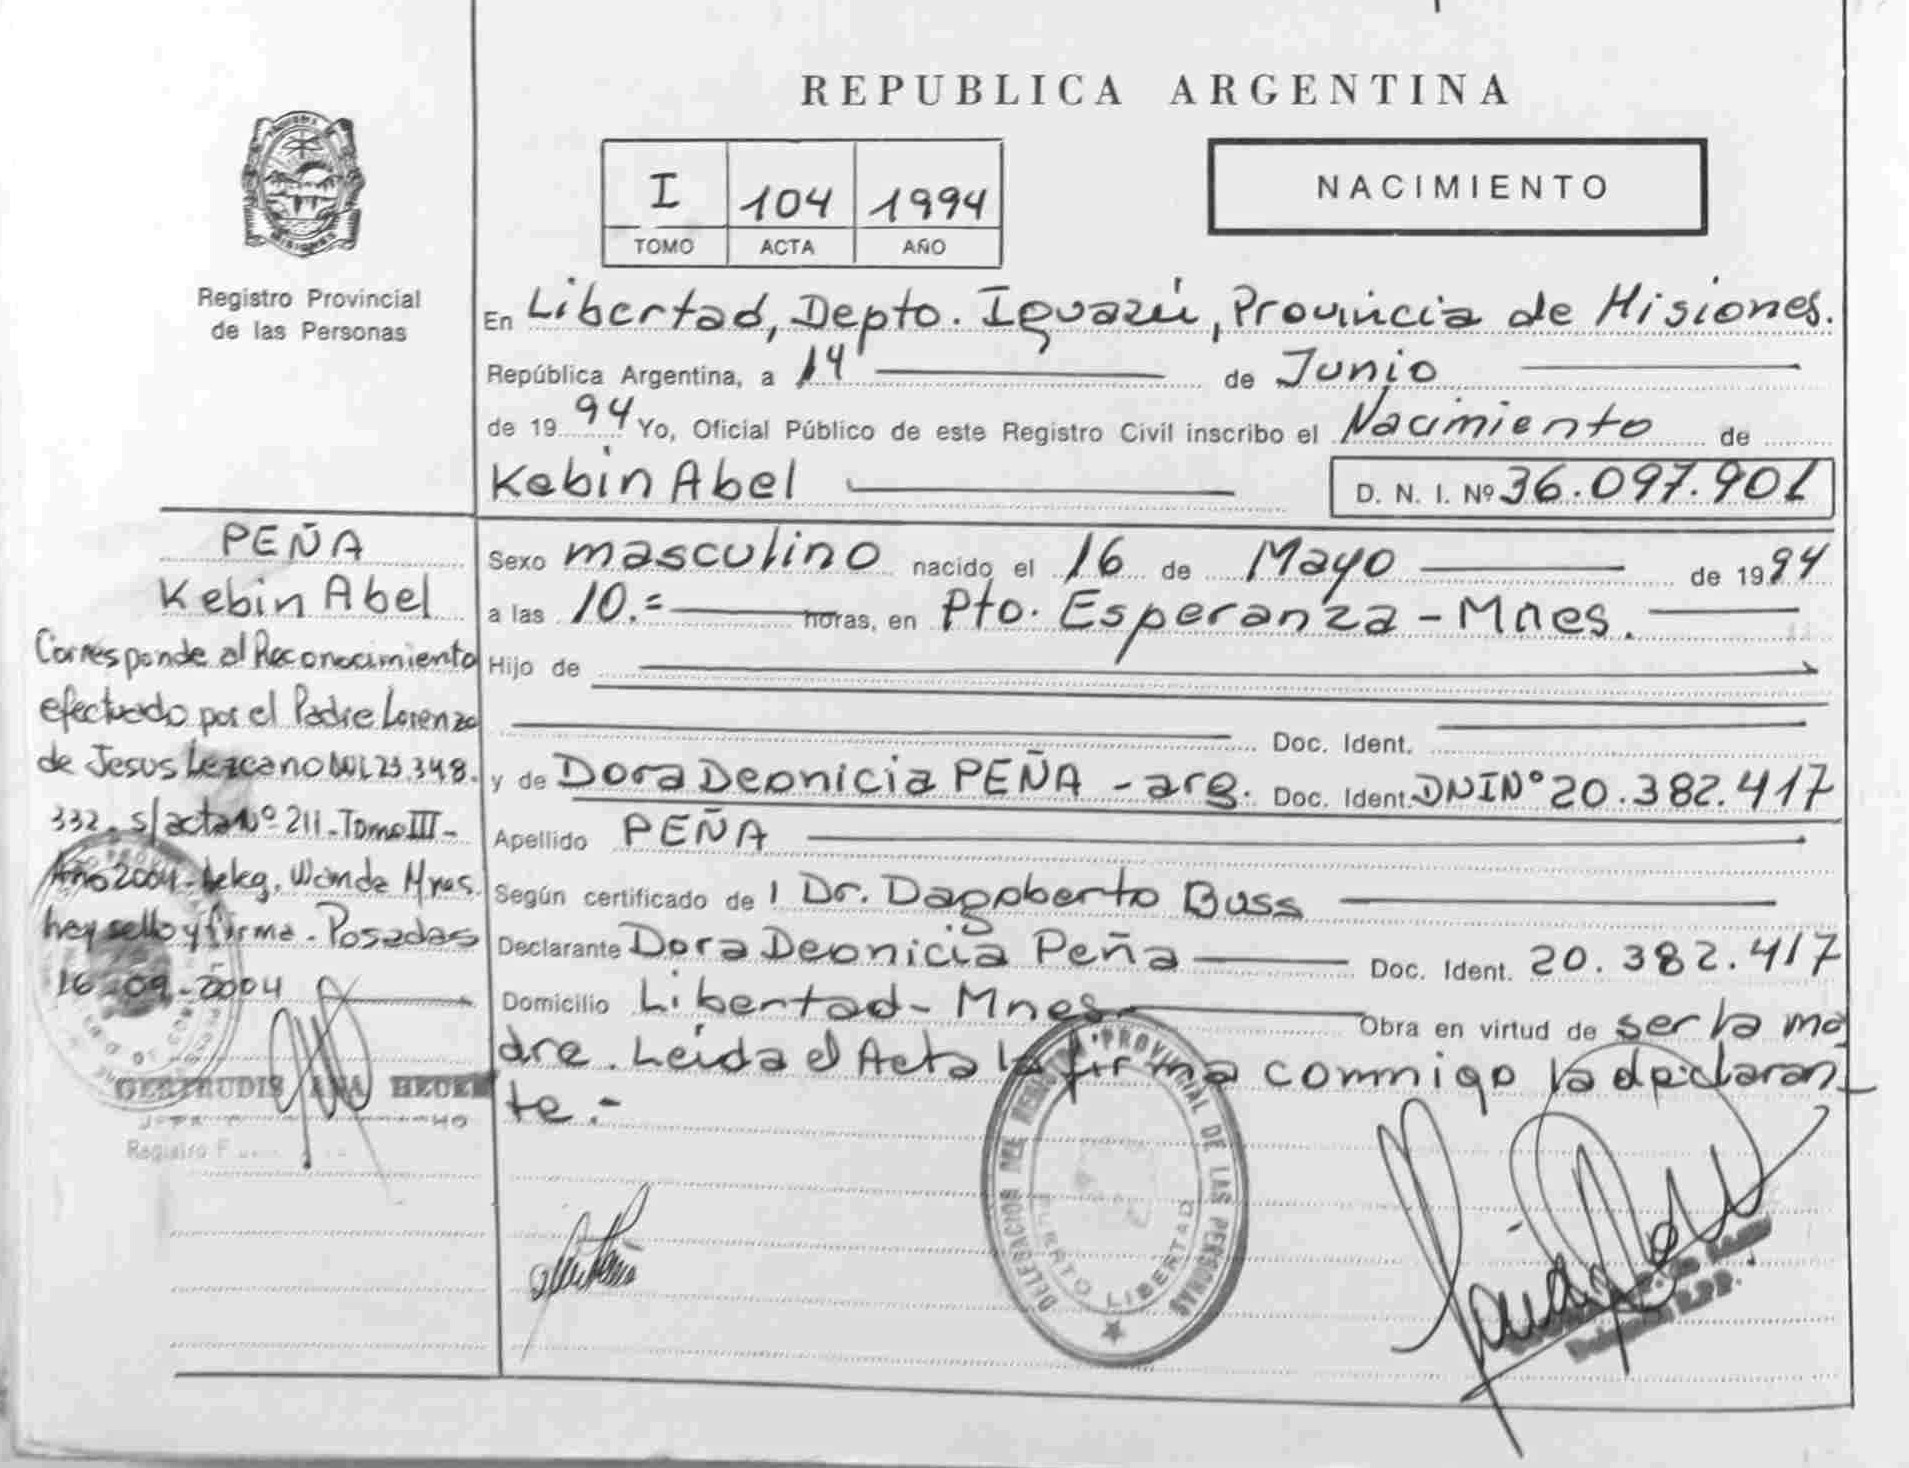 REPUBLICA ARGENTINA
I 104 1994
TOMO ACTA AÑO
NACIMIENTO
MISIONES
Registro Provincial
de las Personas
En Libertad, Depto. Iguazú, Provincia de Misiones.
República Argentina, a 14 de Junio
de 1994 Yo, Oficial Público de este Registro Civil inscribo el Nacimiento de
Kebin Abel D. N. I. Nº 36.097.901
Sexo masculino nacido el 16 de Mayo de 1994
a las 10.= horas, en Pto. Esperanza - Mnes.
Hijo de
Doc. Ident.
y de Dora Deonicia PEÑA - arg. Doc. Ident. DNI Nº 20.382.417
Apellido PEÑA
Según certificado de l Dr. Dagoberto Buss
Declarante Dora Deonicia Peña Doc. Ident. 20.382.417
Domicilio Libertad - Mnes. Obra en virtud de ser la ma
dre. Leída el Acta la firma conmigo la declaran_
te.-
PEÑA
Kebin Abel
Corresponde al Reconocimiento
efectuado por el Padre Lorenzo
de Jesus Lezcano DNI 23.348.
332. s/acta Nº 211 - Tomo III -
Año 2004 - Deleg. Wanda Mnes.
hay sello y firma - Posadas
16-09-2004
GERTRUDIS ANA
Registro
DELEGACION DEL REGISTRO PROVINCIAL DE LAS PERSONAS
PUERTO LIBERTAD